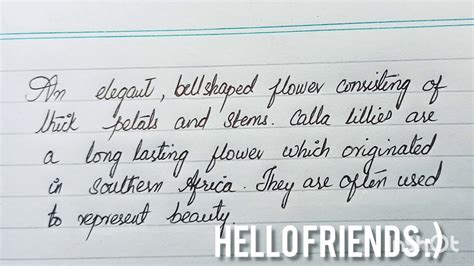 An elegant, bellshaped flower consisting of
thick petals and stems. Calla lillies are
a long lasting flower which originated
in southern Africa. They are often used
to represent beauty
HELLO FRIENDS:)
InShOt